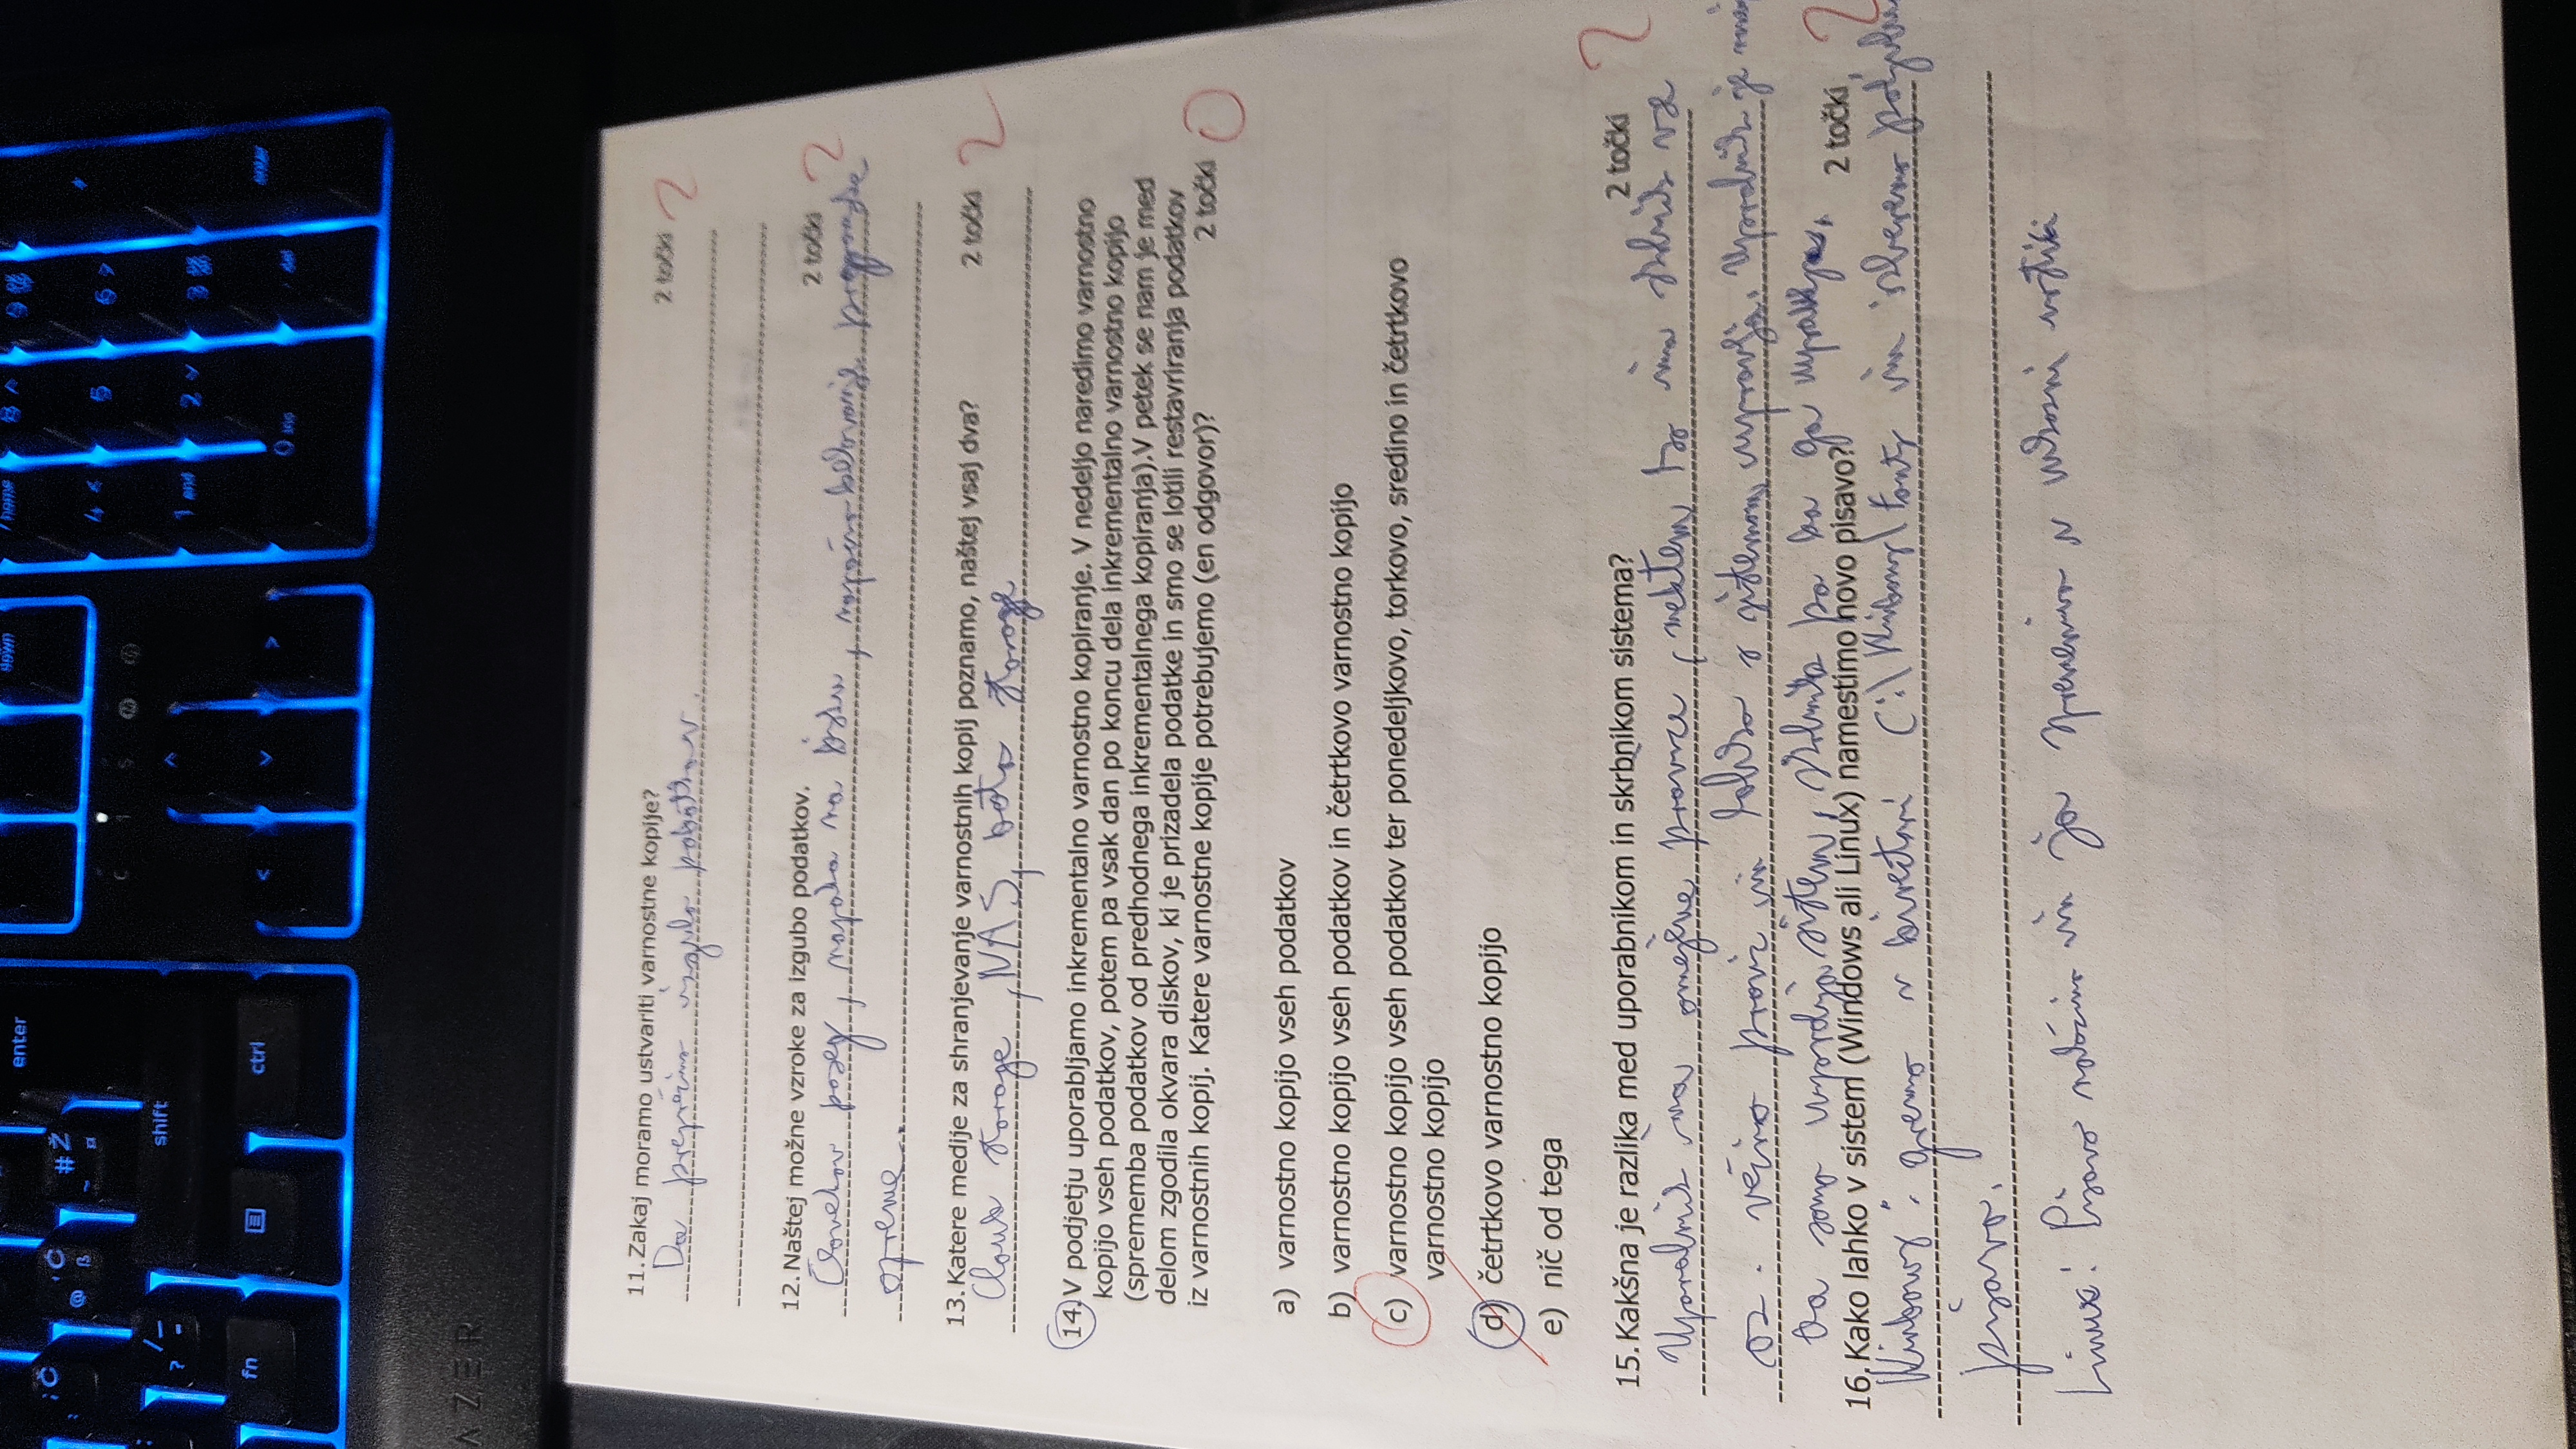 enter
down
home
shift
fn
ctrl
4 <
5
6 >
1 end
2
3
0 ins
del
enter
AZER
11. Zakaj moramo ustvariti varnostne kopije?
2 točki 2
Da preprečimo izgubo podatkov.
12. Naštej možne vzroke za izgubo podatkov.
2 točki 2
Človekov poseg, napaka na disku, napačno delovanje programske
opreme.
13. Katere medije za shranjevanje varnostnih kopij poznamo, naštej vsaj dva?
2 točki 2
Cloud storage, NAS, data storage
14. V podjetju uporabljamo inkrementalno varnostno kopiranje. V nedeljo naredimo varnostno
kopijo vseh podatkov, potem pa vsak dan po koncu dela inkrementalno varnostno kopijo
(sprememba podatkov od predhodnega inkrementalnega kopiranja).V petek se nam je med
delom zgodila okvara diskov, ki je prizadela podatke in smo se lotili restavriranja podatkov
iz varnostnih kopij. Katere varnostne kopije potrebujemo (en odgovor)?
2 točki 0
a) varnostno kopijo vseh podatkov
b) varnostno kopijo vseh podatkov in četrtkovo varnostno kopijo
c) varnostno kopijo vseh podatkov ter ponedeljkovo, torkovo, sredino in četrtkovo
varnostno kopijo
d) četrtkovo varnostno kopijo
e) nič od tega
15. Kakšna je razlika med uporabnikom in skrbnikom sistema?
2 točki 2
Uporabnik ima omejene pravice, medtem ko ima skrbnik vse
oz. večino pravic in lahko s sistemom upravlja. Uporabnik je
da samo uporablja sistem, skrbnik pa da ga upravlja.
16. Kako lahko v sistem (Windows ali Linux) namestimo novo pisavo?
2 točki 2
Windows: gremo v directori C:\Windows\Fonts in izberemo poljubno
pisavo.
Linux: Pisavo naložimo in jo spremenimo v ukazni vrstici